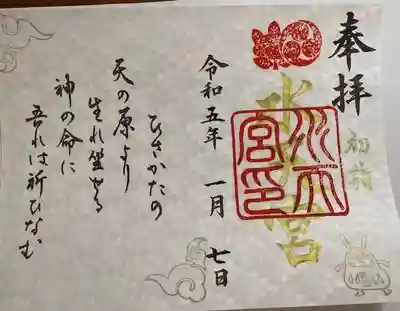 奉拝
初詣
水天宮
水天宮印
令和五年 一月 七日
ひさかたの
天の原より
生れ坐せる
神の命に
吾れは祈ひなむ